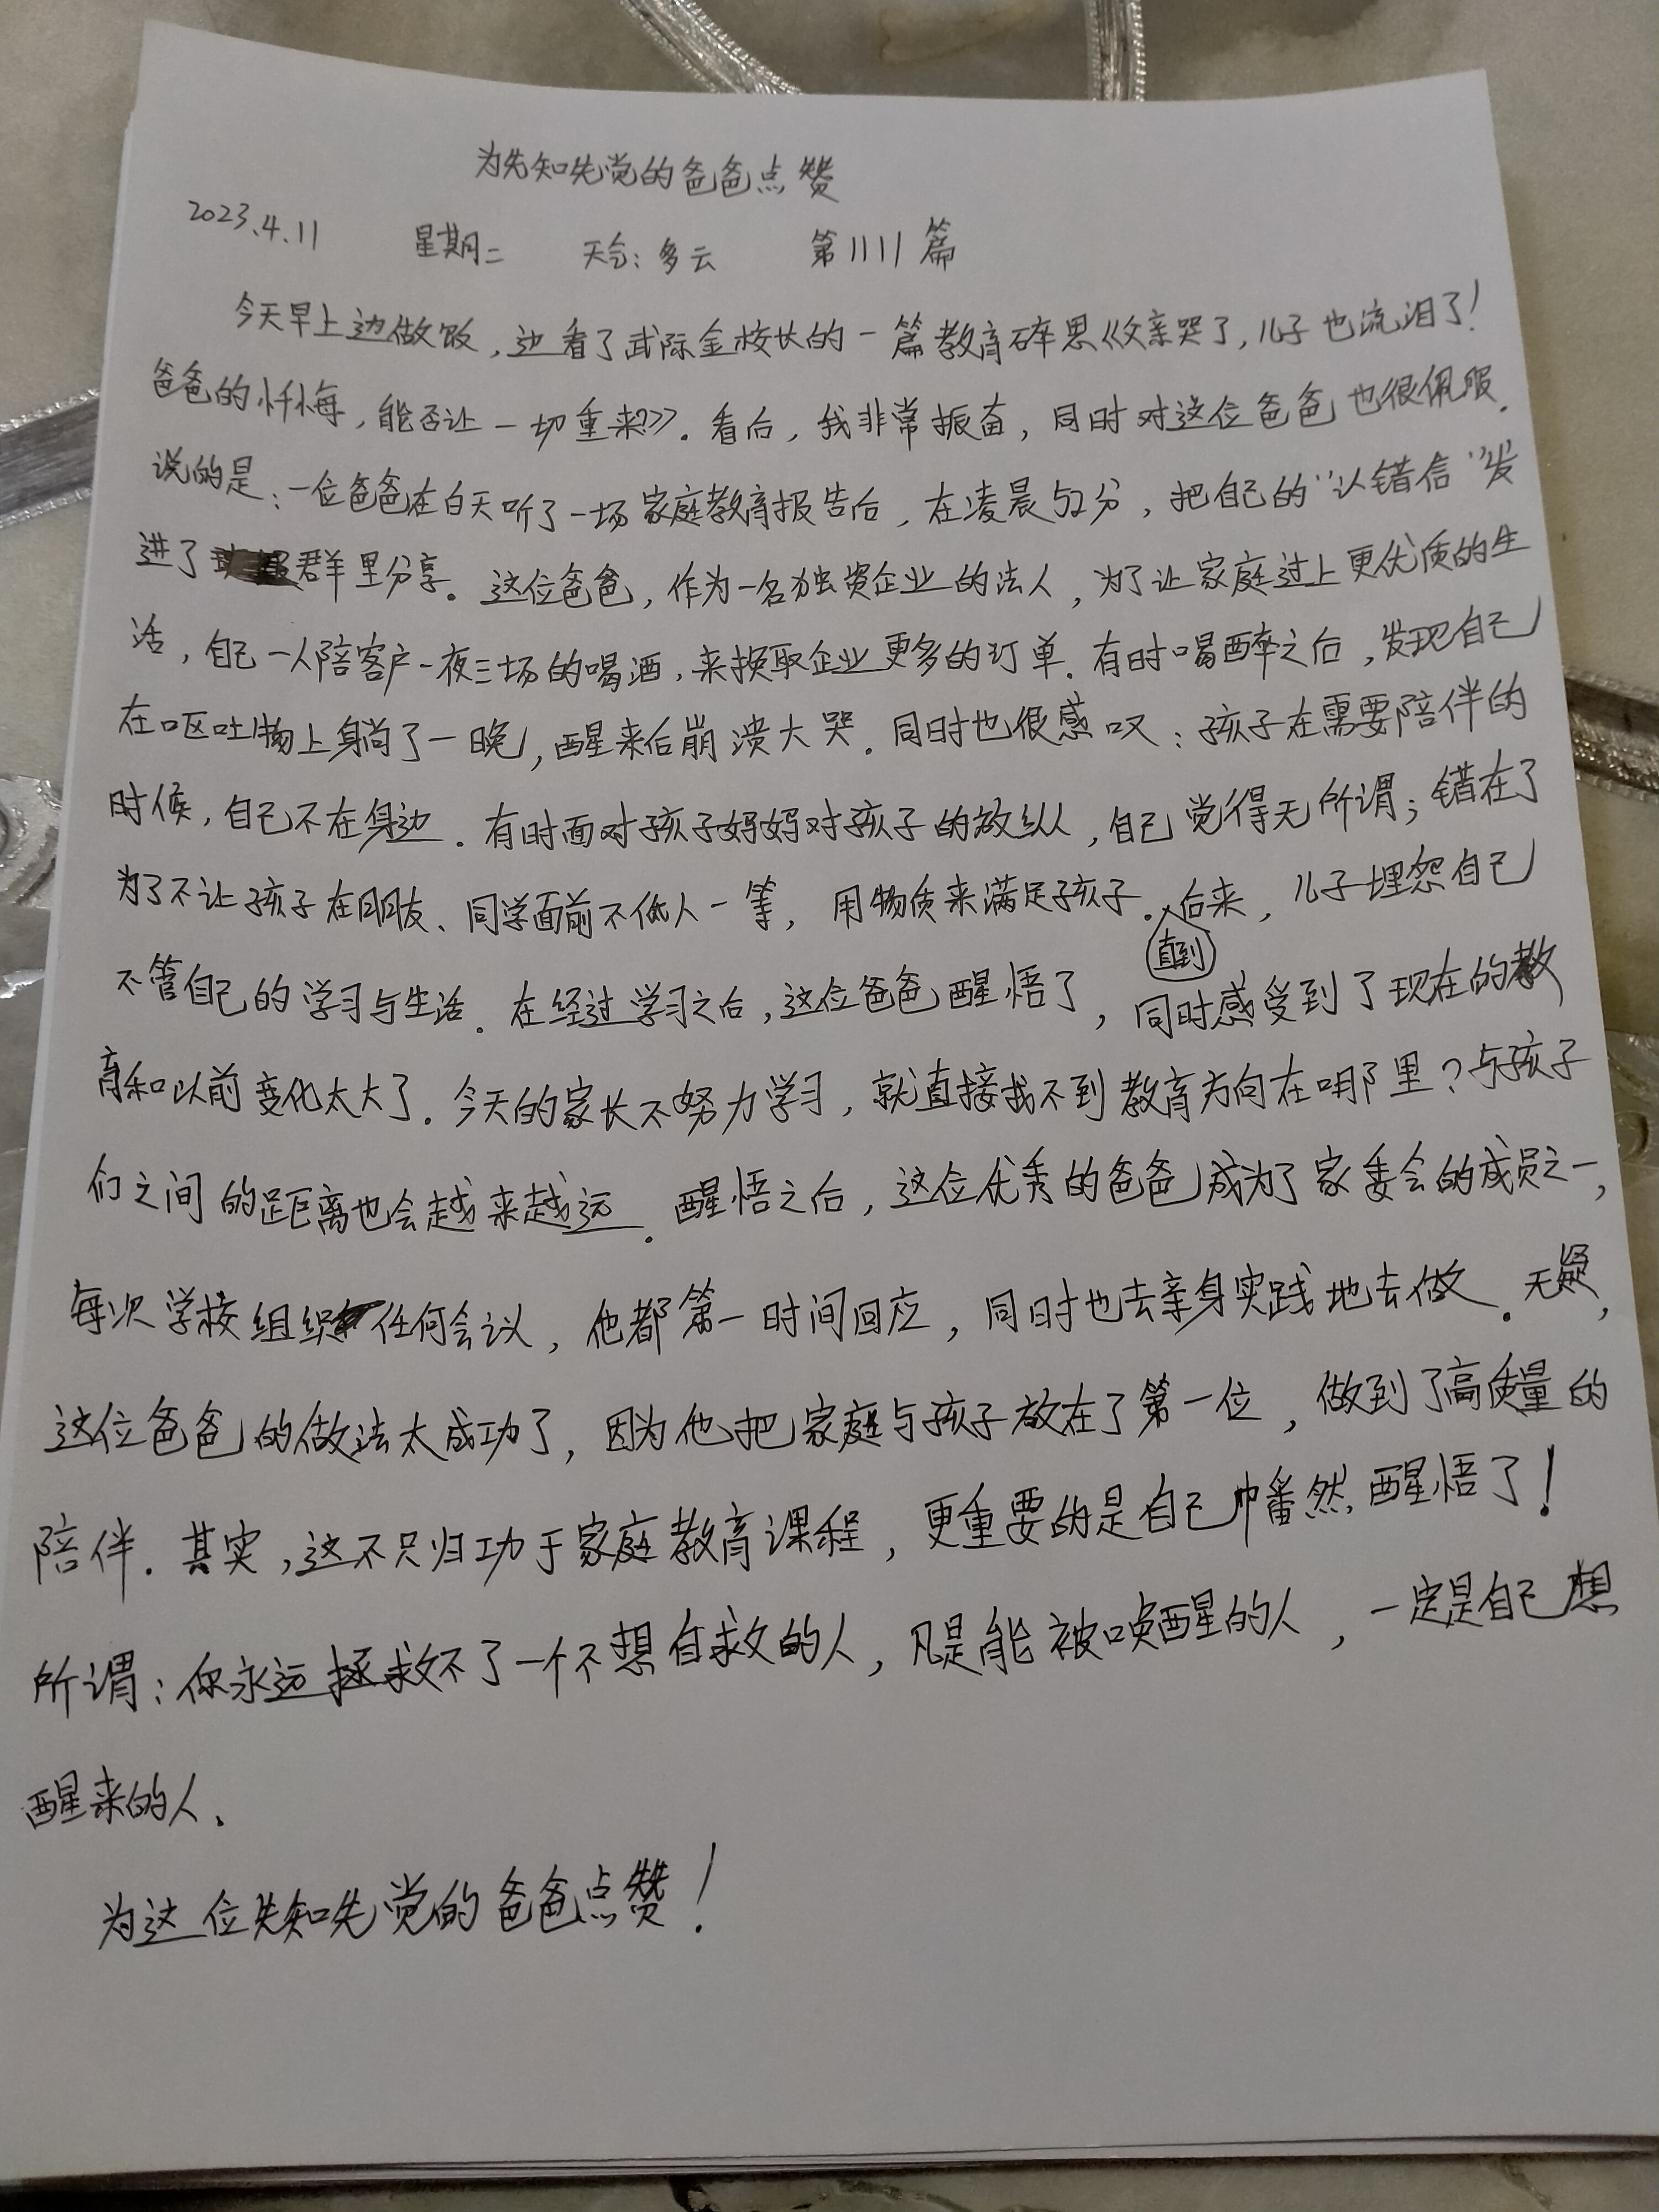 为先知先觉的爸爸点赞
2023.4.11 星期二 天气：多云 第1111篇
今天早上边做饭，边看了武际金校长的一篇教育碎思《父亲哭了，儿子也流泪了！
爸爸的忏悔，能否让一切重来？》。看后，我非常振奋，同时对这位爸爸也很佩服。
说的是：一位爸爸在白天听了一场家庭教育报告后，在凌晨 分，把自己的“认错信”发
进了群里分享。这位爸爸，作为一名独资企业的法人，为了让家庭过上更优质的生
活，自己一人陪客户一夜三场的喝酒，来换取企业更多的订单。有时喝醉之后，发现自己
在呕吐物上躺了一晚，醒来后崩溃大哭。同时也很感叹：孩子在需要陪伴的
时候，自己不在身边。有时面对孩子妈妈对孩子的放纵，自己觉得无所谓；错在了
为了不让孩子在朋友、同学面前不低人一等，用物质来满足孩子。直到后来，儿子埋怨自己
不管自己的学习与生活。在经过学习之后，这位爸爸醒悟了，同时感受到了现在的教
育和以前变化太大了。今天的家长不努力学习，就直接找不到教育方向在哪里？与孩子
们之间的距离也会越来越远。醒悟之后，这位优秀的爸爸成为了家委会的成员之一，
每次学校组织任何会议，他都第一时间回应，同时也去亲身实践地去做。无疑，
这位爸爸的做法太成功了，因为他把家庭与孩子放在了第一位，做到了高质量的
陪伴。其实，这不只归功于家庭教育课程，更重要的是自己幡然醒悟了！
所谓：你永远拯救不了一个不想自救的人，凡是能被唤醒的人，一定是自己想
醒来的人。
为这位先知先觉的爸爸点赞！